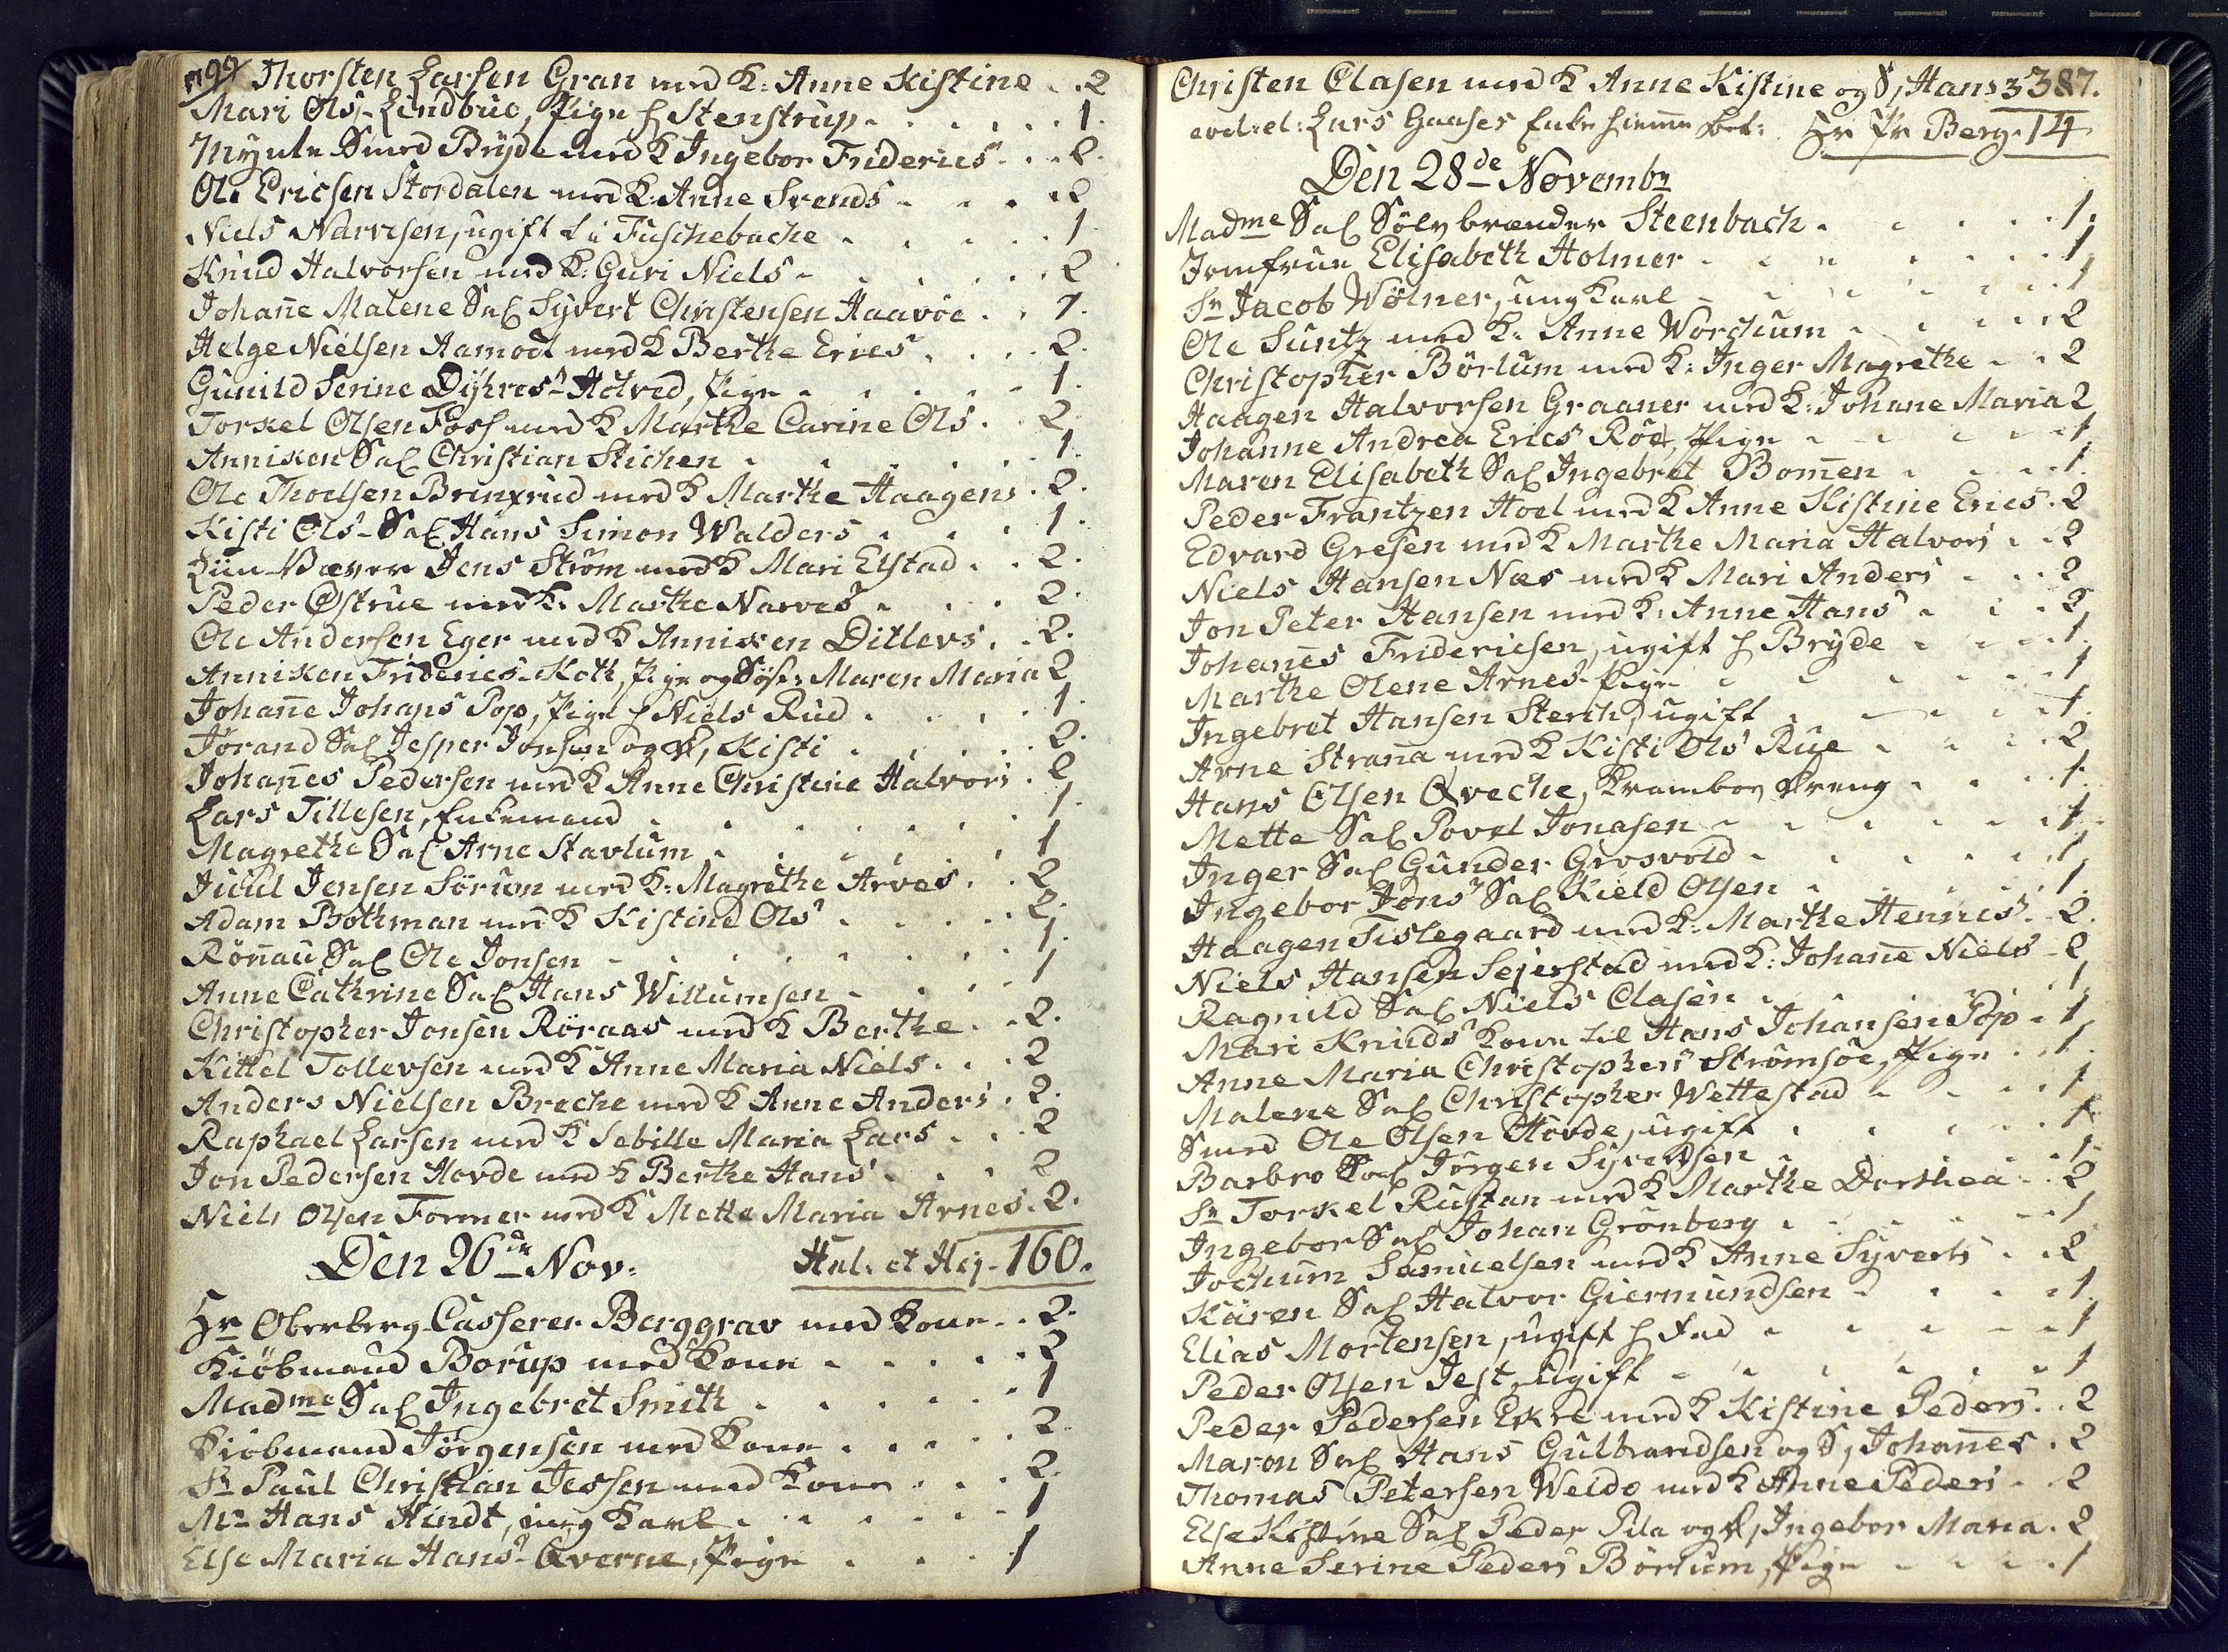 1799 Thorsten Larsen Gran med K: Anne Kistine . . 2
Mari Ols Lindbue, Pige h Stenstrup . . . . . 1.
Mynte Smed Bryde med K Ingebor Friderics . . 2.
Ole Ericsen Stordalen med K: Anne Svends . . . 2
Niels Narvesen, ugift t i Fuschebache . . . . . 1
Knud Halvorsen med K: Guri Niels . . . . . 2
Johan̄e Malene Sal Syvert Christensen Haavöe . . 1.
Helge Nielsen Aamodt med K Berthe Erics . . . 2.
Gunild Serine Dyhres Hotved, Pige . . . . . 1.
Torkel Olsen Foss med K Marthe Carine Ols . . 2
Anniken Sal Christian Stichen . . . . . 1.
Ole Thoelsen Brenfrud med K Marthe Haagens . 2.
Kisti Ols Sal Hans Simon Walders . . . 1.
Liin Væver Jens Ström med K Mari Elstad . . 2.
Peder Østrue med K. Marthe Narves . . . . 2.
Ole Andersen Eger med K Anniken Ditlevs . . 2.
Anniken Friderics Koth, Pige og Søst: Maren Maria 2
Johan̄e Johans Pop, Pige h Niels Rud . . . . 1.
Jørand Sal Jesper Jonsen og D, Kisti . . . . 2.
Johan̄es Pedersen med K Anne Christine Halvors . 2
Lars Tillesen, Enkemand . . . . . . 1.
Magrethe Sal Arne Stavlum . . . . . 1
Juul Jensen Sörum med K: Magrethe Arves . . 2
Adam Bothman med K Kistine Ols . . . . 2.
Rön̄au Sal Ole Jonsen . . . . . . . 1.
Anne Cathrine Sal Hans Willumsen . . . . 1
Christopher Jonsen Röraas med K Berthe . . 2.
Kittel Tollevsen med K Anne Maria Niels . . 2
Anders Nielsen Breche med K Anne Anders . 2.
Raphael Larsen med K Sebille Maria Lars . . 2
Jon Pedersen Hovde med K Berthe Hans . . . 2
Niels Olsen Former med K Mette Maria Arnes . 2.
Den 26de Nov: Hul. et Hej- 160.
Hr Oberberg Casserer Berggrav med Kone . . 2.
Kiöbmand Borup med Kone . . . . . 2
Madme Sal Ingebret Smith . . . . . 1
Kiöbmand Jörgensen med Kone . . . . . 2
Sr Paul Christian Jessen med Kone . . . 2.
Mr Hans Hindt, ung Karl . . . . . . 1
Else Maria Hans Qverne, Pige . . . . 1
Christen Clasen med K Anne Kistine og S, Hans 3 387.
eod: el: Lars Gaases Enke hiem̄e bet: Hr Pr Berg 14
Den 28de Novembr
Madme Sal Sölvbrænder Steenbach . . . . 1.
Jomfrue Elisabeth Holmer . . . . . . 1
Sr Jacob Wölner, ung Karl . . . . . . 1
Ole Suntz med K: Anne Wordum . . . . 2
Christopher Börlum med K: Inger Magrethe . . 2
Haagen Halvorsen Graaner med K: Johane Maria 2
Johanne Andrea Erics Röe, Pige . . . . . 1
Maren Elisabeth Sal Ingebret Bom̄en . . . . 1.
Peder Frantzen Hoel med K Anne Kistine Erics . 2
Edvard Gresen med K Marthe Maria Halvors . . 2
Niels Hansen Næs med K Mari Anders . . . 2
Jon Peter Hansen med K: Anne Hans . . . 2
Johan̄es Fridericsen, ugift h Bryde . . . . 1.
Marthe Olene Arnes Pige . . . . . . 1
Ingebret Hansen Sterch, ugift . . . . . 1.
Arne Stran̄a med K Kisti Ols Rue . . . . 2
Hans Olsen Qveche, Krambod Dreng . . . . 1.
Mette Sal Povel Jonasen . . . . . . 1
Inger Sal Gunder Grosvold . . . . . . 1
Ingebor Jons Sal Kield Olsen . . . . . 1.
Haagen Tislegaard med K: Marthe Hennies . . 2.
Niels Hansen Sejerstad med K: Johan̄e Niels . 2
Ragnild Sal Niels Clasen . . . . . . 1
Mari Knuds Kone til Hans Johansen Pop . 1
Anne Maria Christophers Strömsöe, Pige . . 1.
Malene Sal Christopher Wettestad . . . . 1
Smed Ole Olsen Hovde, ugift . . . . . 1
Barbro Sal Jörgen Syvertsen . . . . . 1.
Sr Torkel Rustan med K Marthe Dorthea . . 2
Ingebor Sal Johan Grönberg . . . . . . 1
Jochum Samuelsen med K Anne Syverts . . 2
Karen Sal Halvor Giermundsen . . . . 1.
Elias Mortensen, ugift h Fad . . . . . 1
Peder Olsen Jest, ugift . . . . . . 1
Peder Pedersen Ekre med K Kistine Peders . . 2
Maren Sal Hans Gulbrandsen og S, Johan̄es . 2
Thomas Petersen Weldo med K Anne Peders . . 2
Else Kistine Sal Peder Pila og D, Ingebor Maria . 2
Anne Serine Peders Börlum, Pige . . . . 1